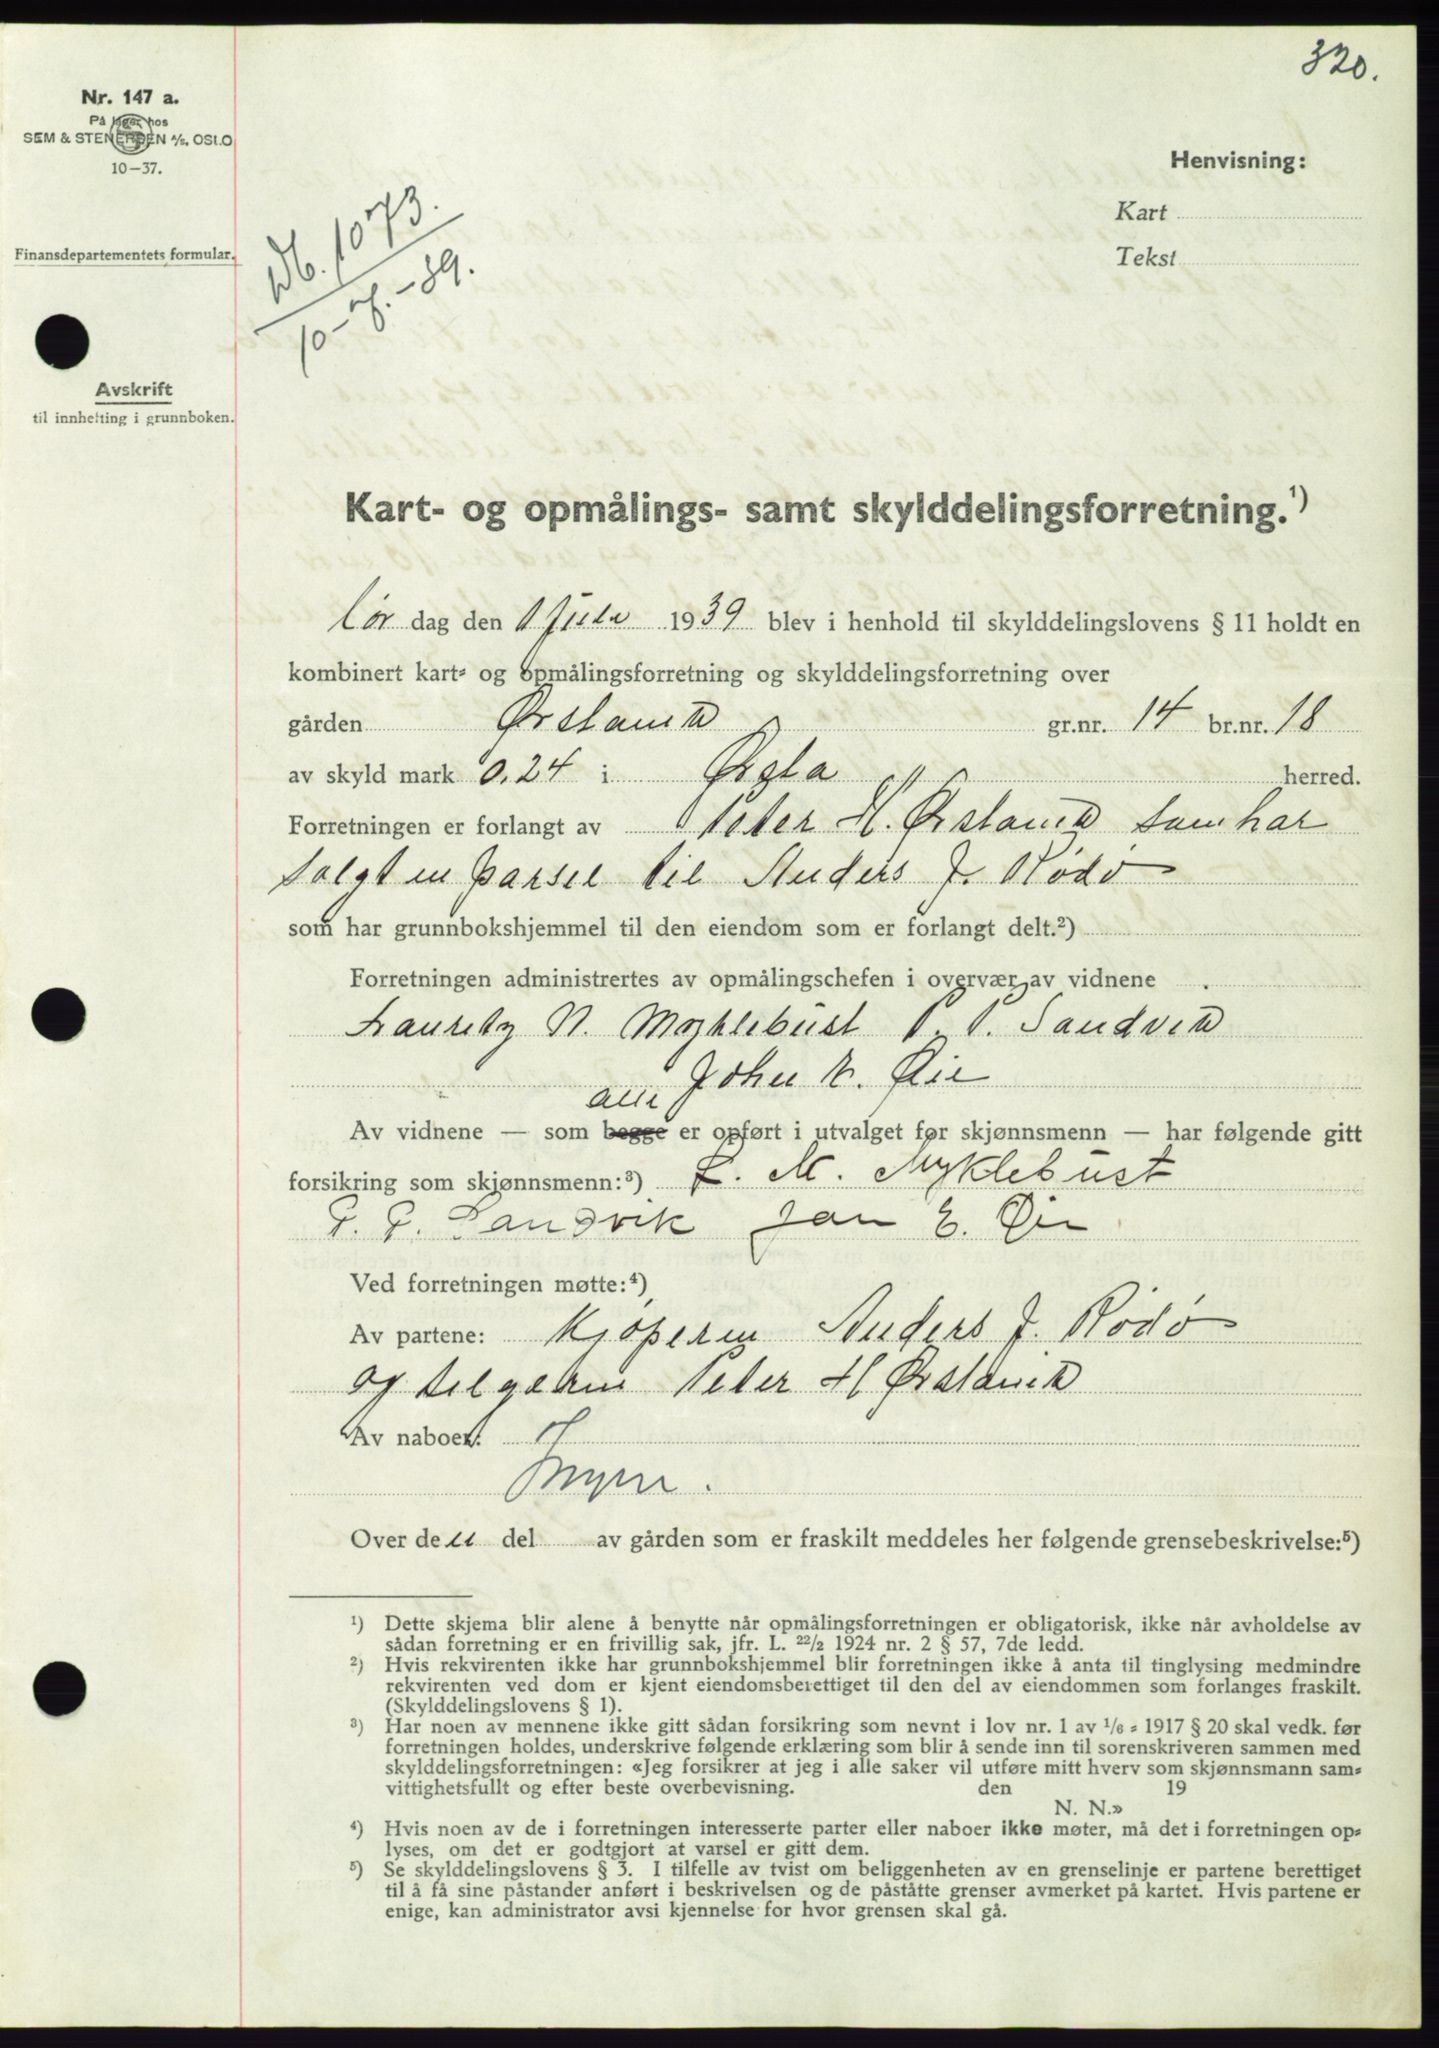 320.
Nr. 147 a.
På lager hos
SEM & STENERSEN A/S, OSLO
10—37.
Henvisning:
Kart
Tekst
Finansdepartementets formular.
Db. 1073.
10-7.-39.
Avskrift
til innhefting i grunnboken.
Kart- og opmålings- samt skylddelingsforretning.¹)
lør dag den 1 Juli 1939 blev i henhold til skylddelingslovens § 11 holdt en
kombinert kart- og opmålingsforretning og skylddelingsforretning over
gården Ørstavik gr.nr. 14 br.nr. 18
av skyld mark 0.24 i Ørsta herred.
Forretningen er forlangt av Peter H. Ørstavik som har
solgt en parsel til Anders J. Rødø
som har grunnbokshjemmel til den eiendom som er forlangt delt.²)
Forretningen administrertes av opmålingschefen i overvær av vidnene
Lauritz N. Myklebust P. P. Sandvik
John E. Øie
alle
Av vidnene — som begge er opført i utvalget før skjønnsmenn — har følgende gitt
forsikring som skjønnsmenn:³) L. M. Myklebust
P. P. Sandvik Jon E. Øie
Ved forretningen møtte:⁴)
Av partene: Kjøperen Anders J. Rødø
og selgeren Peter H Ørstavik
Av naboer:
Ingen.
Over den del av gården som er fraskilt meddeles her følgende grensebeskrivelse:⁵)
¹) Dette skjema blir alene å benytte når opmålingsforretningen er obligatorisk, ikke når avholdelse av
sådan forretning er en frivillig sak, jfr. L. 22/2 1924 nr. 2 § 57, 7de ledd.
²) Hvis rekvirenten ikke har grunnbokshjemmel blir forretningen ikke å anta til tinglysing medmindre
rekvirenten ved dom er kjent eiendomsberettiget til den del av eiendommen som forlanges fraskilt.
(Skylddelingslovens § 1).
³) Har noen av mennene ikke gitt sådan forsikring som nevnt i lov nr. 1 av 1/6 - 1917 § 20 skal vedk. før
forretningen holdes, underskrive følgende erklæring som blir å sende inn til sorenskriveren sammen med
skylddelingsforretningen: «Jeg forsikrer at jeg i alle saker vil utføre mitt hverv som skjønnsmann sam-
vittighetsfullt og efter beste overbevisning. den 19
N. N.»
⁴) Hvis noen av de i forretningen interesserte parter eller naboer ikke møter, må det i forretningen op-
lyses, om det er godtgjort at varsel er gitt dem.
⁵) Se skylddelingslovens § 3. I tilfelle av tvist om beliggenheten av en grenselinje er partene berettiget
til å få sine påstander anført i beskrivelsen og de påståtte grenser avmerket på kartet. Hvis partene er
enige, kan administrator avsi kjennelse for hvor grensen skal gå.